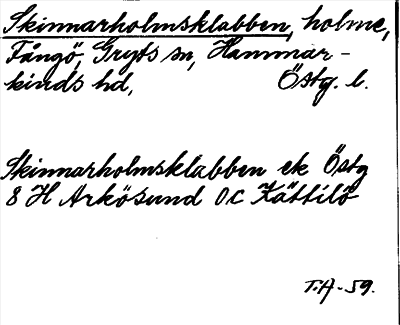 Skinnarholmsklabben, holme,
Fångö, Gryts sn, Hammar-
kinds hd, Östg. l.
Skinnarholmsklabben ek Östg
8 H Arkösund OC Kättilö
T.A-59.